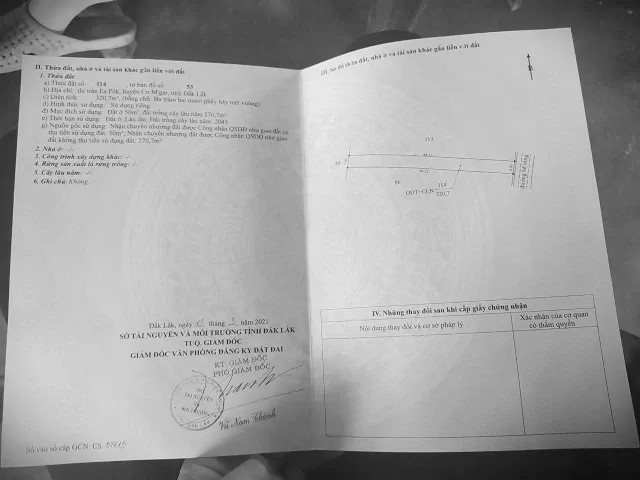 II. Thửa đất, nhà ở và tài sản khác gắn liền với đất
1. Thửa đất:
a) Thửa đất số: 114 , tờ bản đồ số: 53
b) Địa chỉ: thị trấn Ea Pốk, huyện Cư M'gar, tỉnh Đắk Lắk
c) Diện tích: 320,7m², (bằng chữ: Ba trăm hai mươi phẩy bảy mét vuông)
d) Hình thức sử dụng: Sử dụng riêng
đ) Mục đích sử dụng: Đất ở 50m², đất trồng cây lâu năm 270,7m²
e) Thời hạn sử dụng: Đất ở: Lâu dài; Đất trồng cây lâu năm: 2043
g) Nguồn gốc sử dụng: Nhận chuyển nhượng đất được Công nhận QSDĐ như giao đất có
thu tiền sử dụng đất: 50m²; Nhận chuyển nhượng đất được Công nhận QSDĐ như giao
đất không thu tiền sử dụng đất: 270,7m²
2. Nhà ở: -/-
3. Công trình xây dựng khác: -/-
4. Rừng sản xuất là rừng trồng: -/-
5. Cây lâu năm: -/-
6. Ghi chú: Không.
Đắk Lắk, ngày tháng 5 năm 2021
SỞ TÀI NGUYÊN VÀ MÔI TRƯỜNG TỈNH ĐẮK LẮK
TUQ. GIÁM ĐỐC
GIÁM ĐỐC VĂN PHÒNG ĐĂNG KÝ ĐẤT ĐAI
KT. GIÁM ĐỐC
PHÓ GIÁM ĐỐC
Vũ Nam Thành
Số vào sổ cấp GCN: CS
III. Sơ đồ thửa đất, nhà ở và tài sản khác gắn liền với đất
113
84
114
ODT+CLN
320,7
đường bê tông
IV. Những thay đổi sau khi cấp giấy chứng nhận
Nội dung thay đổi và cơ sở pháp lý
Xác nhận của cơ quan
có thẩm quyền